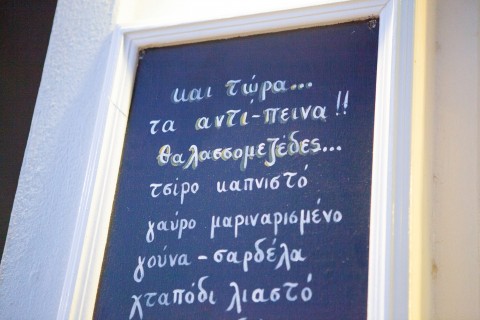 και τώρα...
τα αντί-πεινα!!
θαλασσομεζέδες...
τσίρο καπνιστό
γαύρο μαριναρισμένο
γούνα-σαρδέλα
χταπόδι λιαστό